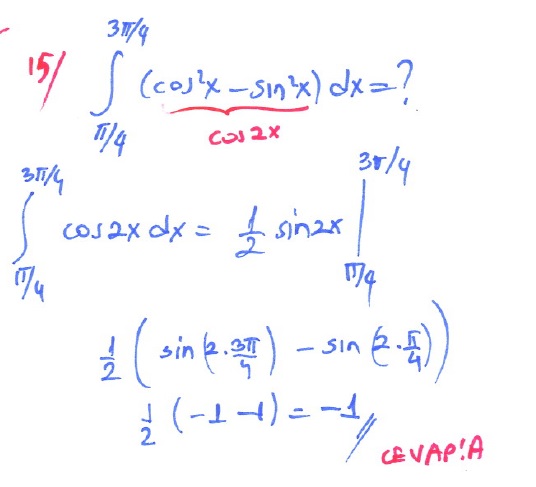 15/ ∫_{π/4}^{3π/4} (cos²x – sin²x) dx = ?
cos2x
∫_{π/4}^{3π/4} cos2x dx = 1/2 sin2x |_{π/4}^{3π/4}
1/2 ( sin(2·3π/4) – sin(2·π/4))
1/2 (-1 -1) = -1 //
CEVAP!A